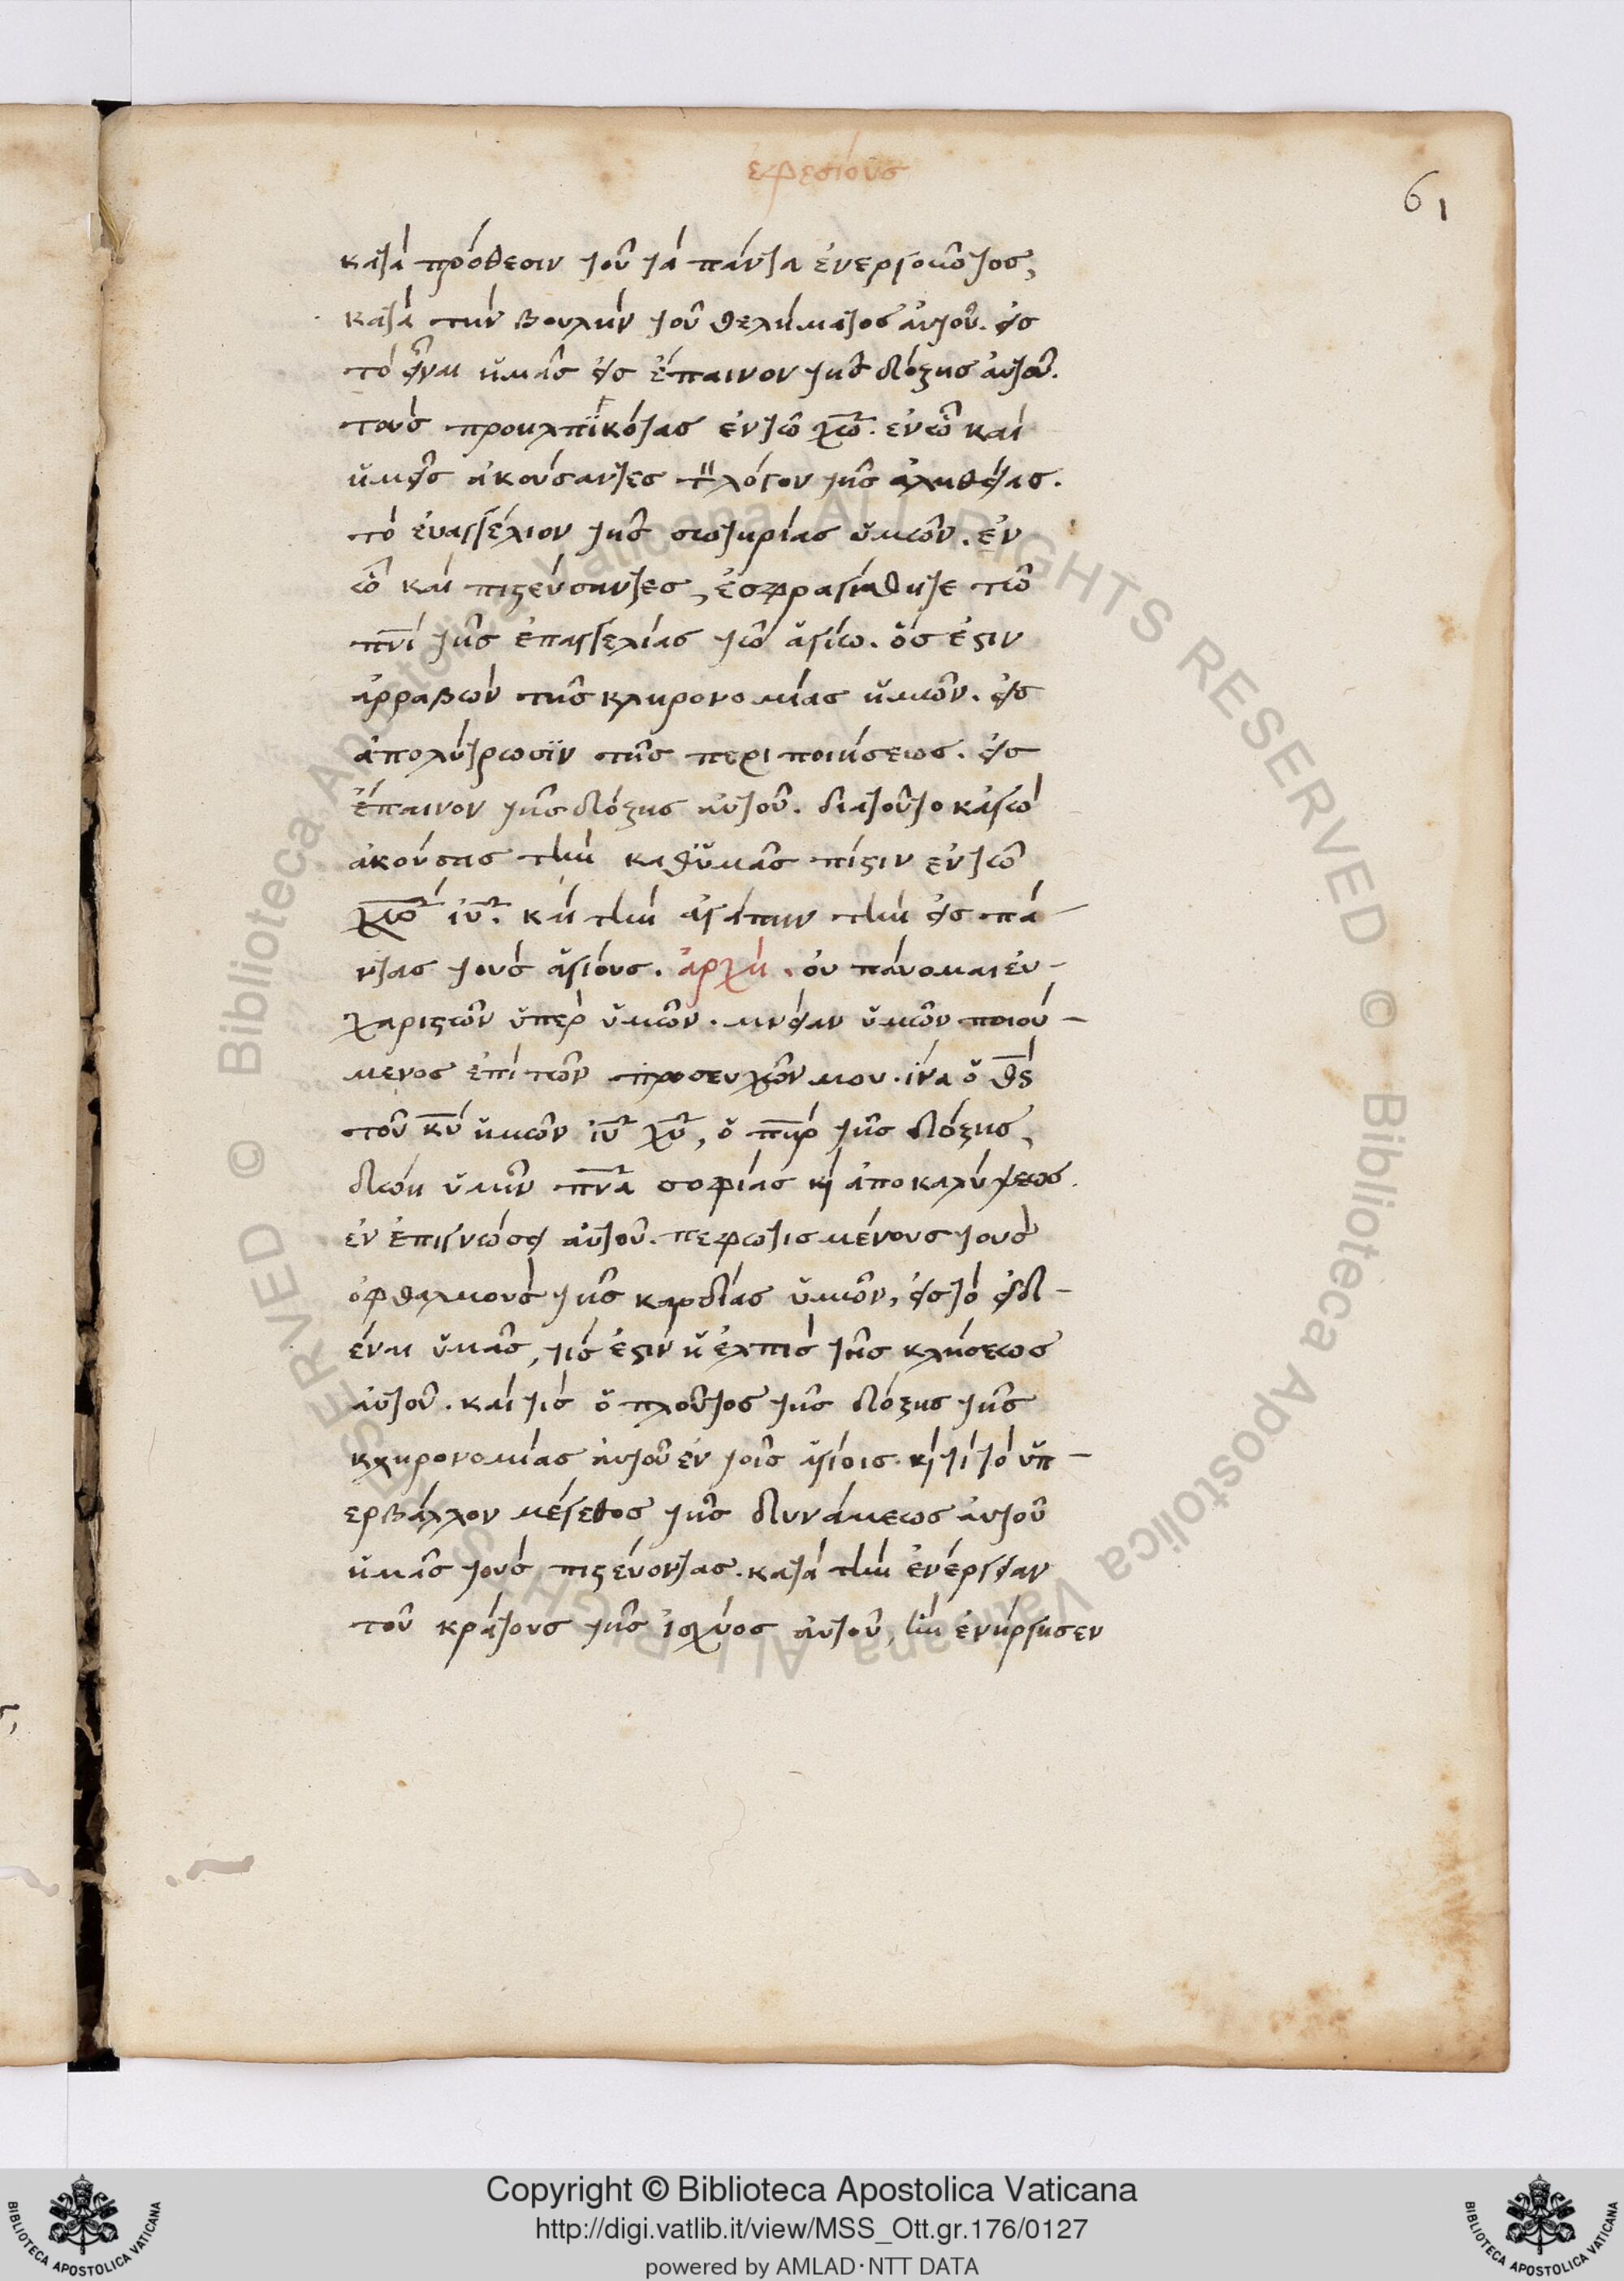 ἐφεσίους
61
κατὰ πρόθεσιν τοῦ τὰ πάντα ἐνεργοῦντος,
κατὰ τὴν βουλὴν τοῦ θελήματος αὐτοῦ. εἰς
τὸ εἶναι ἡμᾶς εἰς ἔπαινον τῆς δόξης αὐτοῦ.
τοὺς προηλπϊκότας ἐν τῶ χ̅ω̅. ἐν ὧ καὶ
ὑμεῖς ἀκούσαντες τὸν λόγον τῆς ἀληθείας.
τὸ ἐυαγγέλιον τῆς σωτηρίας ὑμῶν. ἐν
ὧ καὶ πιστεύσαντες, ἐσφραγίσθητε τῶ
π̅ν̅ι̅ τῆς ἐπαγγελίας τῶ ἁγίω. ὅς ἐστιν
ἀρραβὼν τῆς κληρονομίας ἡμῶν. εἰς
ἀπολύτρωσϊν τῆς περιποιήσεως. εἰς
ἔπαινον τῆς δόξης αὐτοῦ. διατοῦτο κἀγὼ
ἀκούσας τὴν καθ ὑμᾶς πίστιν ἐν τῶ
χ̅ω̅ ἰ̅υ̅. καὶ τὴν ἀγάπην τὴν εἰς πά-
ντας τοὺς ἁγίους. ἀρχὴ. οὐ πάυομαι ἐυ-
χαριστῶν ὑπὲρ ὑμῶν. μνείαν ὑμῶν ποιού-
μενος ἐπὶ τῶν προσευχῶν μου. ἵνα ὁ θ̅ς̅
τοῦ κ̅υ̅ ἡμῶν ἰ̅υ̅ χ̅υ̅, ὁ π̅η̅ρ̅ τῆς δόξης,
δώη ὑμῖν π̅ν̅α̅ σοφίας κ̀ ἀποκαλύψεως.
ἐν ἐπιγνώσει αὐτοῦ. πεφωτισμένους τοὺς
ὀφθαλμοὺς τῆς καρδίας ὑμῶν, εἰς τὸ εἰδ-
έναι ὑμᾶς, τίς ἐστὶν ἡ ἐλπὶς τῆς κλήσεως
αὐτοῦ. καὶ τίς ὁ πλοῦτος τῆς δόξης τῆς
κληρονομίας αὐτοῦ ἐν τοῖς ἁγίοις. κ̀ τί τὸ ὑπ-
ερβάλλον μέγεθος τῆς δυνάμεως αὐτοῦ
ἡμᾶς τοὺς πιστεύοντας. κατὰ τὴν ἐνέργειαν
τοῦ κράτους τῆς ἰσχύος αὐτοῦ, ἣν ἐνήργησεν
© Biblioteca Apostolica Vaticana ALL RIGHTS RESERVED © Biblioteca Apostolica Vaticana ALL RIGHTS RESERVED
BIBLIOTECA APOSTOLICA VATICANA
Copyright © Biblioteca Apostolica Vaticana
http://digi.vatlib.it/view/MSS_Ott.gr.176/0127
powered by AMLAD·NTT DATA
BIBLIOTECA APOSTOLICA VATICANA